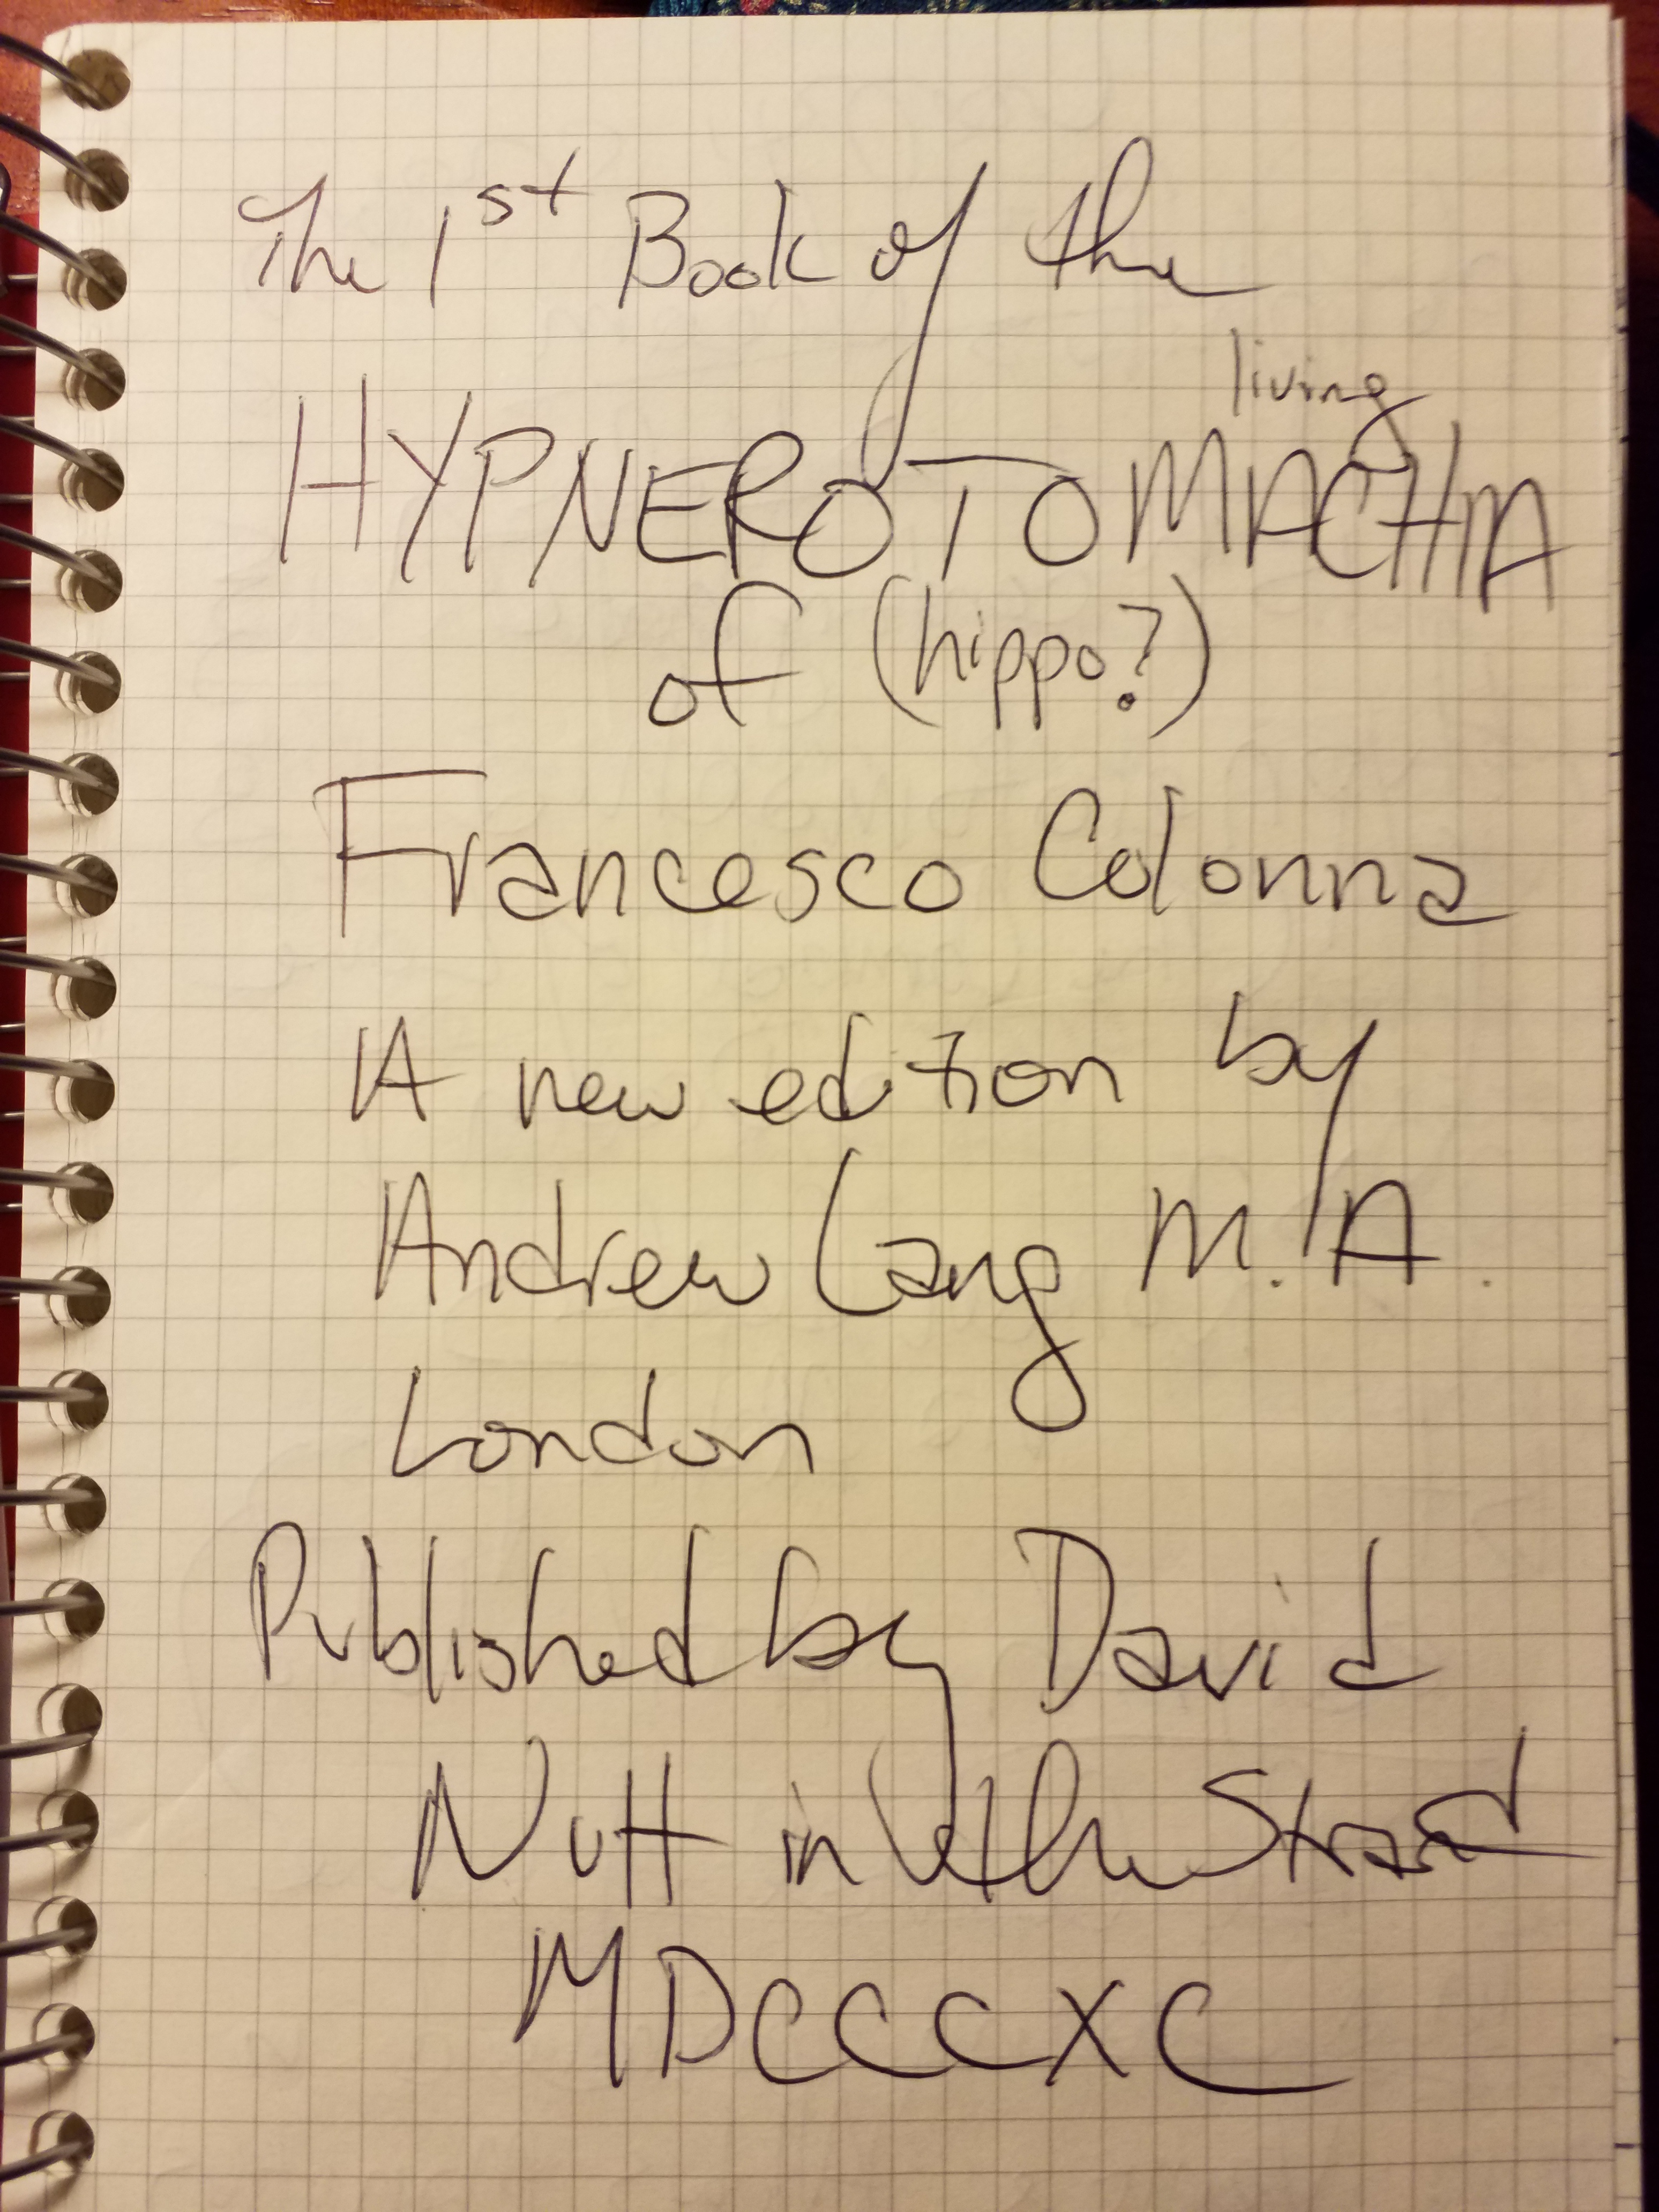 The 1st Book of the
living
HYPNEROTOMACHIA
of (hippo?)
Francesco Colonna
A new edition by
Andrew Lang M.A.
London
Published by David
Nutt in the Strand
MDCCCXC